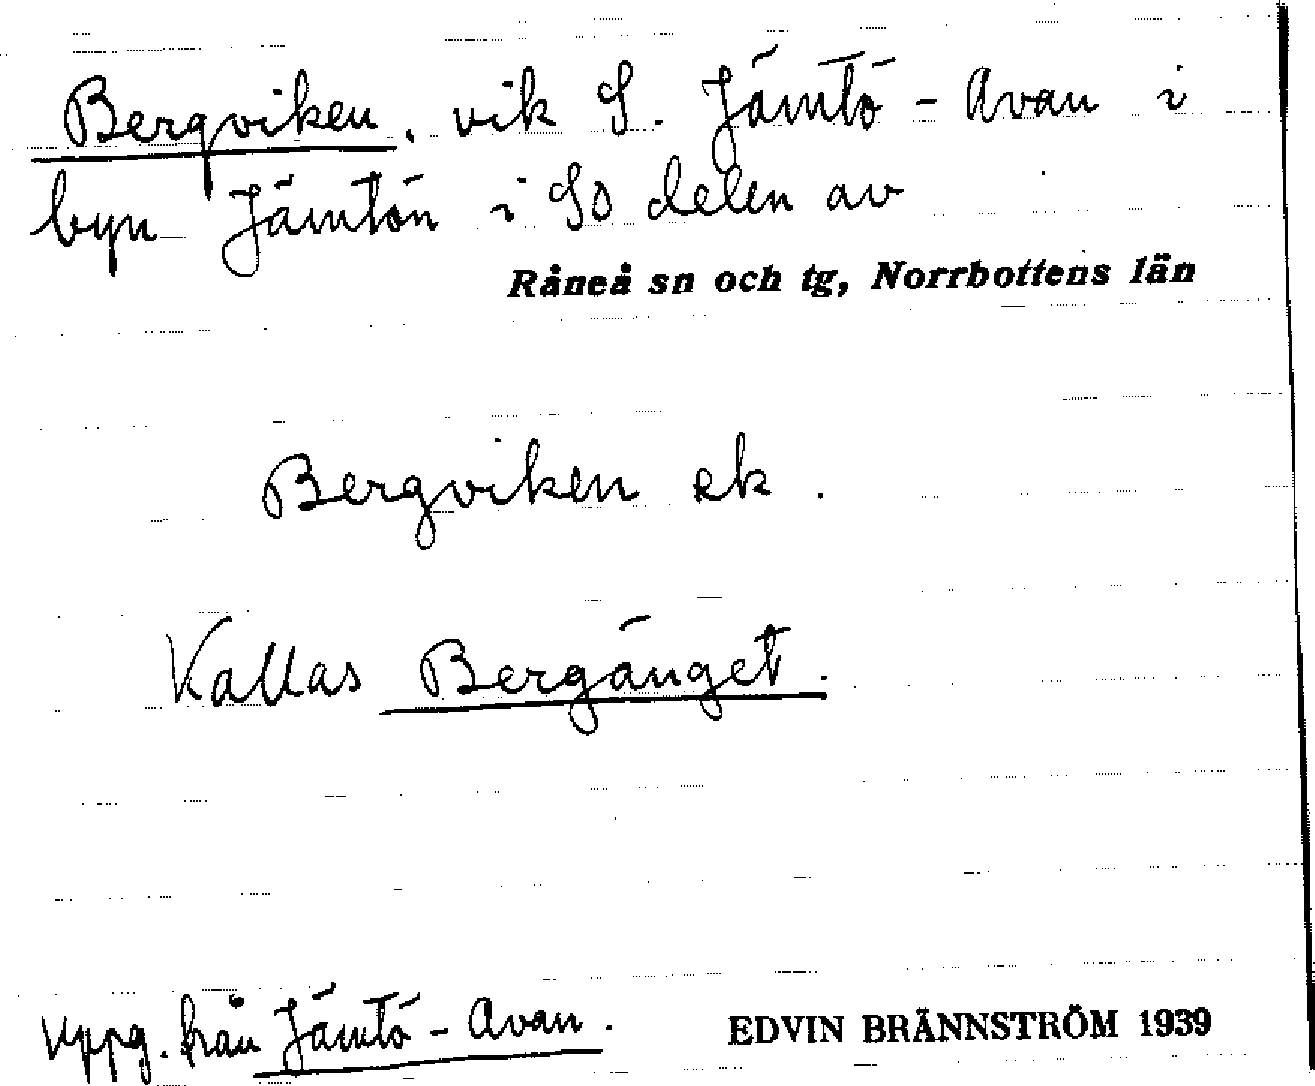 Bergviken, vik S. Jämtö-Avan i
byn Jämtön i SO delen av
Råneå sn och tg, Norrbottens län
Bergviken ek.
Kallas Bergänget.
Uppg. från Jämtö-Avan.
EDVIN BRÄNNSTRÖM 1939